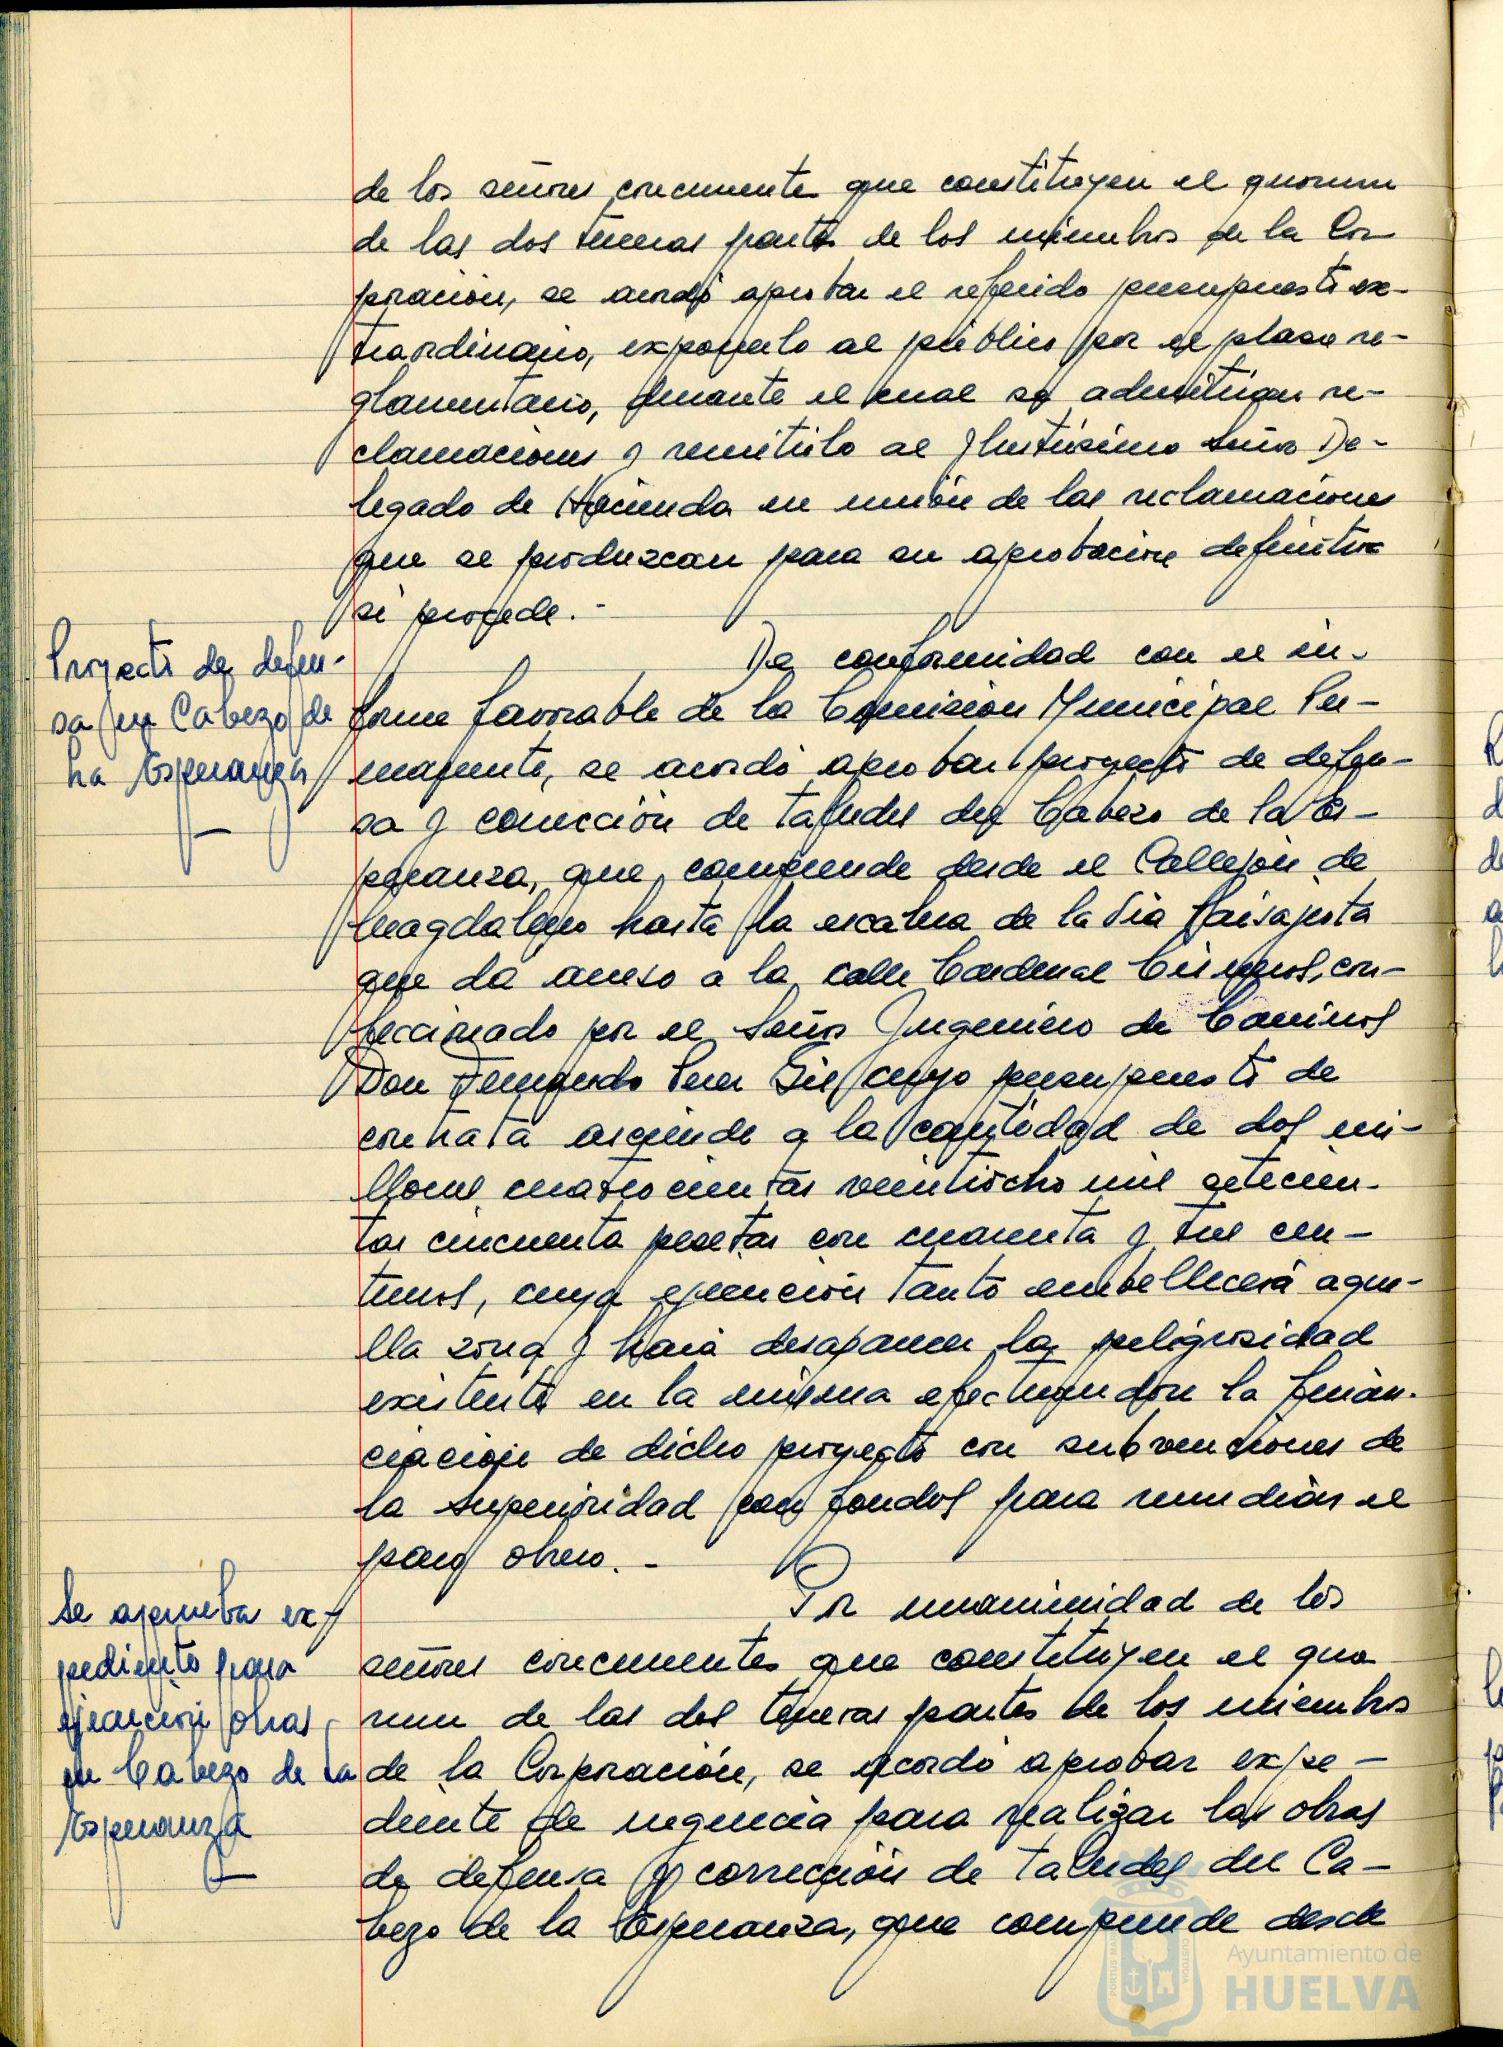 de los señores concurrentes que constituyen el quorum
de las dos terceras partes de los miembros de la Cor
poración, se acordó aprobar el referido presupuesto ex-
traordinario, exponerlo al público por el plazo re-
glamentario, durante el cual se admitirán re-
clamaciones y remitirlo al Ilustrísimo Señor De-
legado de Hacienda en unión de las reclamaciones
que se produzcan para su aprobación definitiva
si procede.-
Proyecto de defen-
sa en Cabezo de
la Esperanza
De conformidad con el in-
forme favorable de la Comisión Municipal Per-
manente, se acordó aprobar proyecto de defen-
sa y corrección de taludes del Cabezo de la Es-
peranza, que comprende desde el Callejón de
Magdaleno hasta la escalera de la Vía Paisajista
que da acceso a la calle Cardenal Cisneros, con-
feccionado por el Señor Ingeniero de Caminos
Don Fernando Perez Gil cuyo presupuesto de
contrata asciende a la cantidad de dos mi-
llones cuatrocientas veintiocho mil setecien-
tas cincuenta pesetas con cuarenta y tres cen-
timos, cuya ejecución tanto embellecerá aque-
lla zona y hará desaparecer la peligrosidad
existente en la misma efectuandose la finan-
ciación de dicho proyecto con subvenciones de
la superioridad con fondos para remediar el
paro obrero.-
Se aprueba ex-
pediente para
ejecución obras
en Cabezo de la
Esperanza
Por unanimidad de los
señores concurrentes que constituyen el quo
rum de las dos terceras partes de los miembros
de la Corporación, se acordó aprobar expe-
diente de urgencia para realizar las obras
de defensa y corrección de taludes del Ca-
bezo de la Esperanza, que comprende desde
Ayuntamiento de
HUELVA